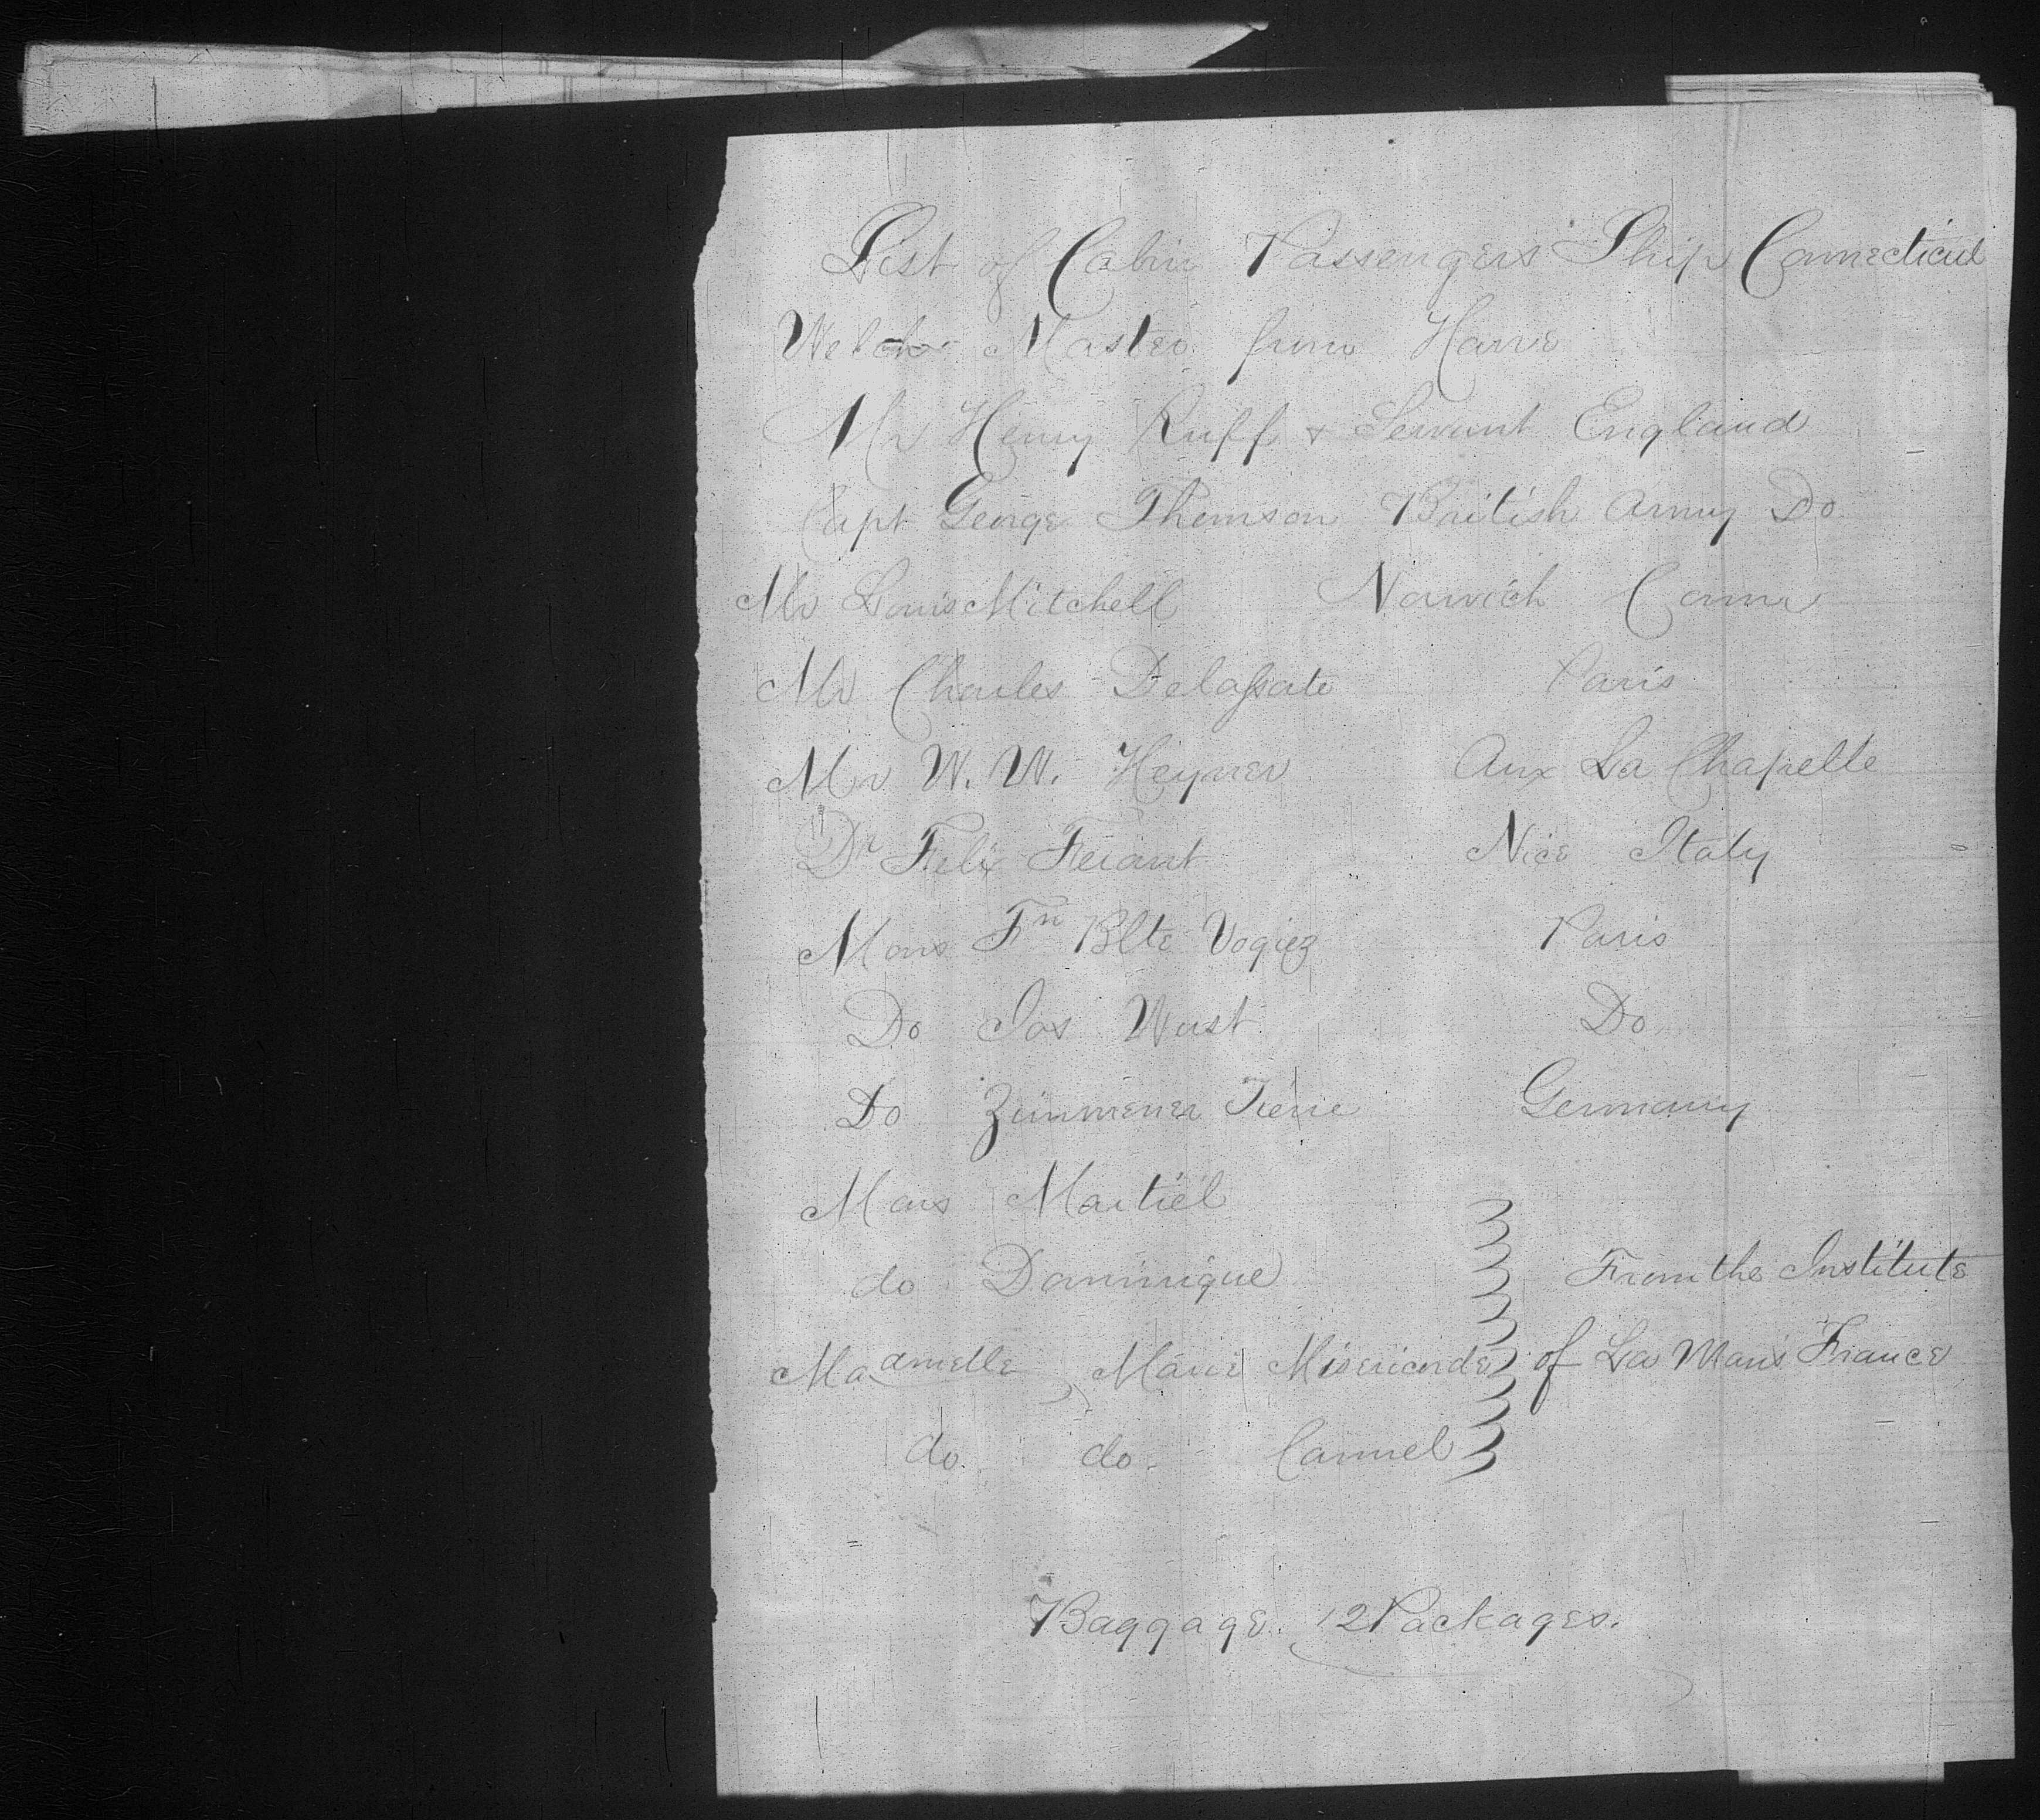 List of Cabin Passengers Ship Connecticut
Welch Master from Havre
Mr Henry Ruff & Servant England
Capt George Thomson British Army Do
Mr Louis Mitchell Norwich Conn
Mr Charles Paris
Mr W. W. Aux La Chapelle
Dr Felix Ferant Nice Italy
Mons Fn Blte Vogiez Paris
Do Jos Wust Do
Do Germany
Mons Martiel
do Dominique From the Institute
Madmelle Marie Misericorde of La Mans France
do do Carmel
Baggage. 12 Packages.